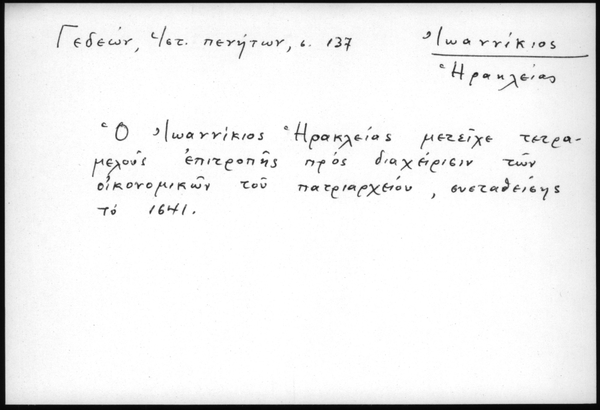 Γεδεών, Ἱστ. πενήτων, σ. 137
Ἰωαννίκιος
Ἡρακλείας
Ὁ Ἰωαννίκιος Ἡρακλείας μετεῖχε τετρα-
μελοῦς ἐπιτροπῆς πρός διαχείρισιν τῶν
οἰκονομικῶν τοῦ πατριαρχείου, συσταθείσης
τό 1641.